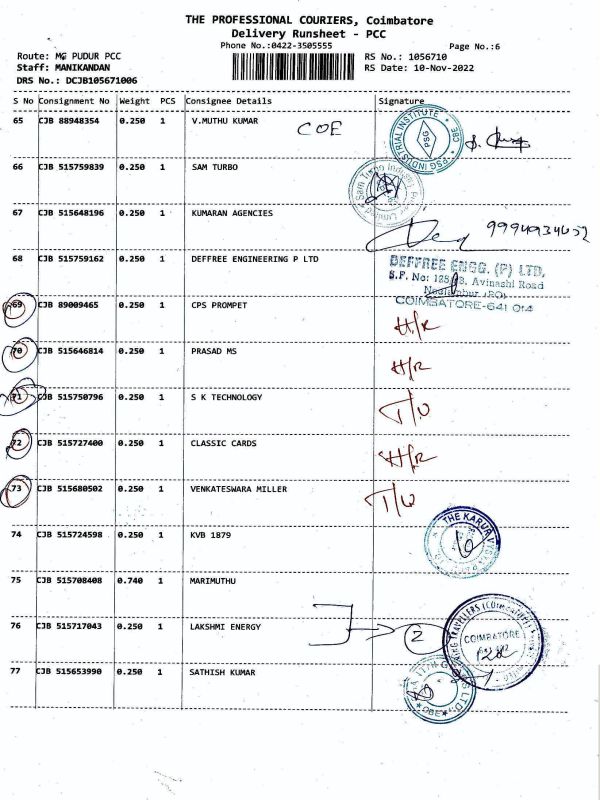 THE PROFESSIONAL COURIERS, Coimbatore
Delivery Runsheet - PCC
Phone No.:0422-3505555
Page No.:6
Route: MG PUDUR PCC
RS No.: 1056710
Staff: MANIKANDAN
RS Date: 10-Nov-2022
DRS No.: DCJB105671006
S No Consignment No Weight PCS Consignee Details Signature
65 CJB 88948354 0.250 1 V.MUTHU KUMAR
COE
PSG INDUSTRIAL INSTITUTE * CBE *
PSG
66 CJB 515759839 0.250 1 SAM TURBO
Sam Turbo Industry Private Limited
67 CJB 515648196 0.250 1 KUMARAN AGENCIES
9994934652
68 CJB 515759162 0.250 1 DEFFREE ENGINEERING P LTD
DEFFREE ENGG. (P) LTD.
Avinashi Road
COIMBATORE-641 014
69 CJB 89009465 0.250 1 CPS PROMPET
H/R
70 CJB 515646814 0.250 1 PRASAD MS
H/R
71 CJB 515750796 0.250 1 S K TECHNOLOGY
72 CJB 515727400 0.250 1 CLASSIC CARDS
H/R
73 CJB 515680502 0.250 1 VENKATESWARA MILLER
74 CJB 515724598 0.250 1 KVB 1879
THE KARUR VYSYA
75 CJB 515708408 0.740 1 MARIMUTHU
76 CJB 515717043 0.250 1 LAKSHMI ENERGY
2
COIMBATORE
77 CJB 515653990 0.250 1 SATHISH KUMAR